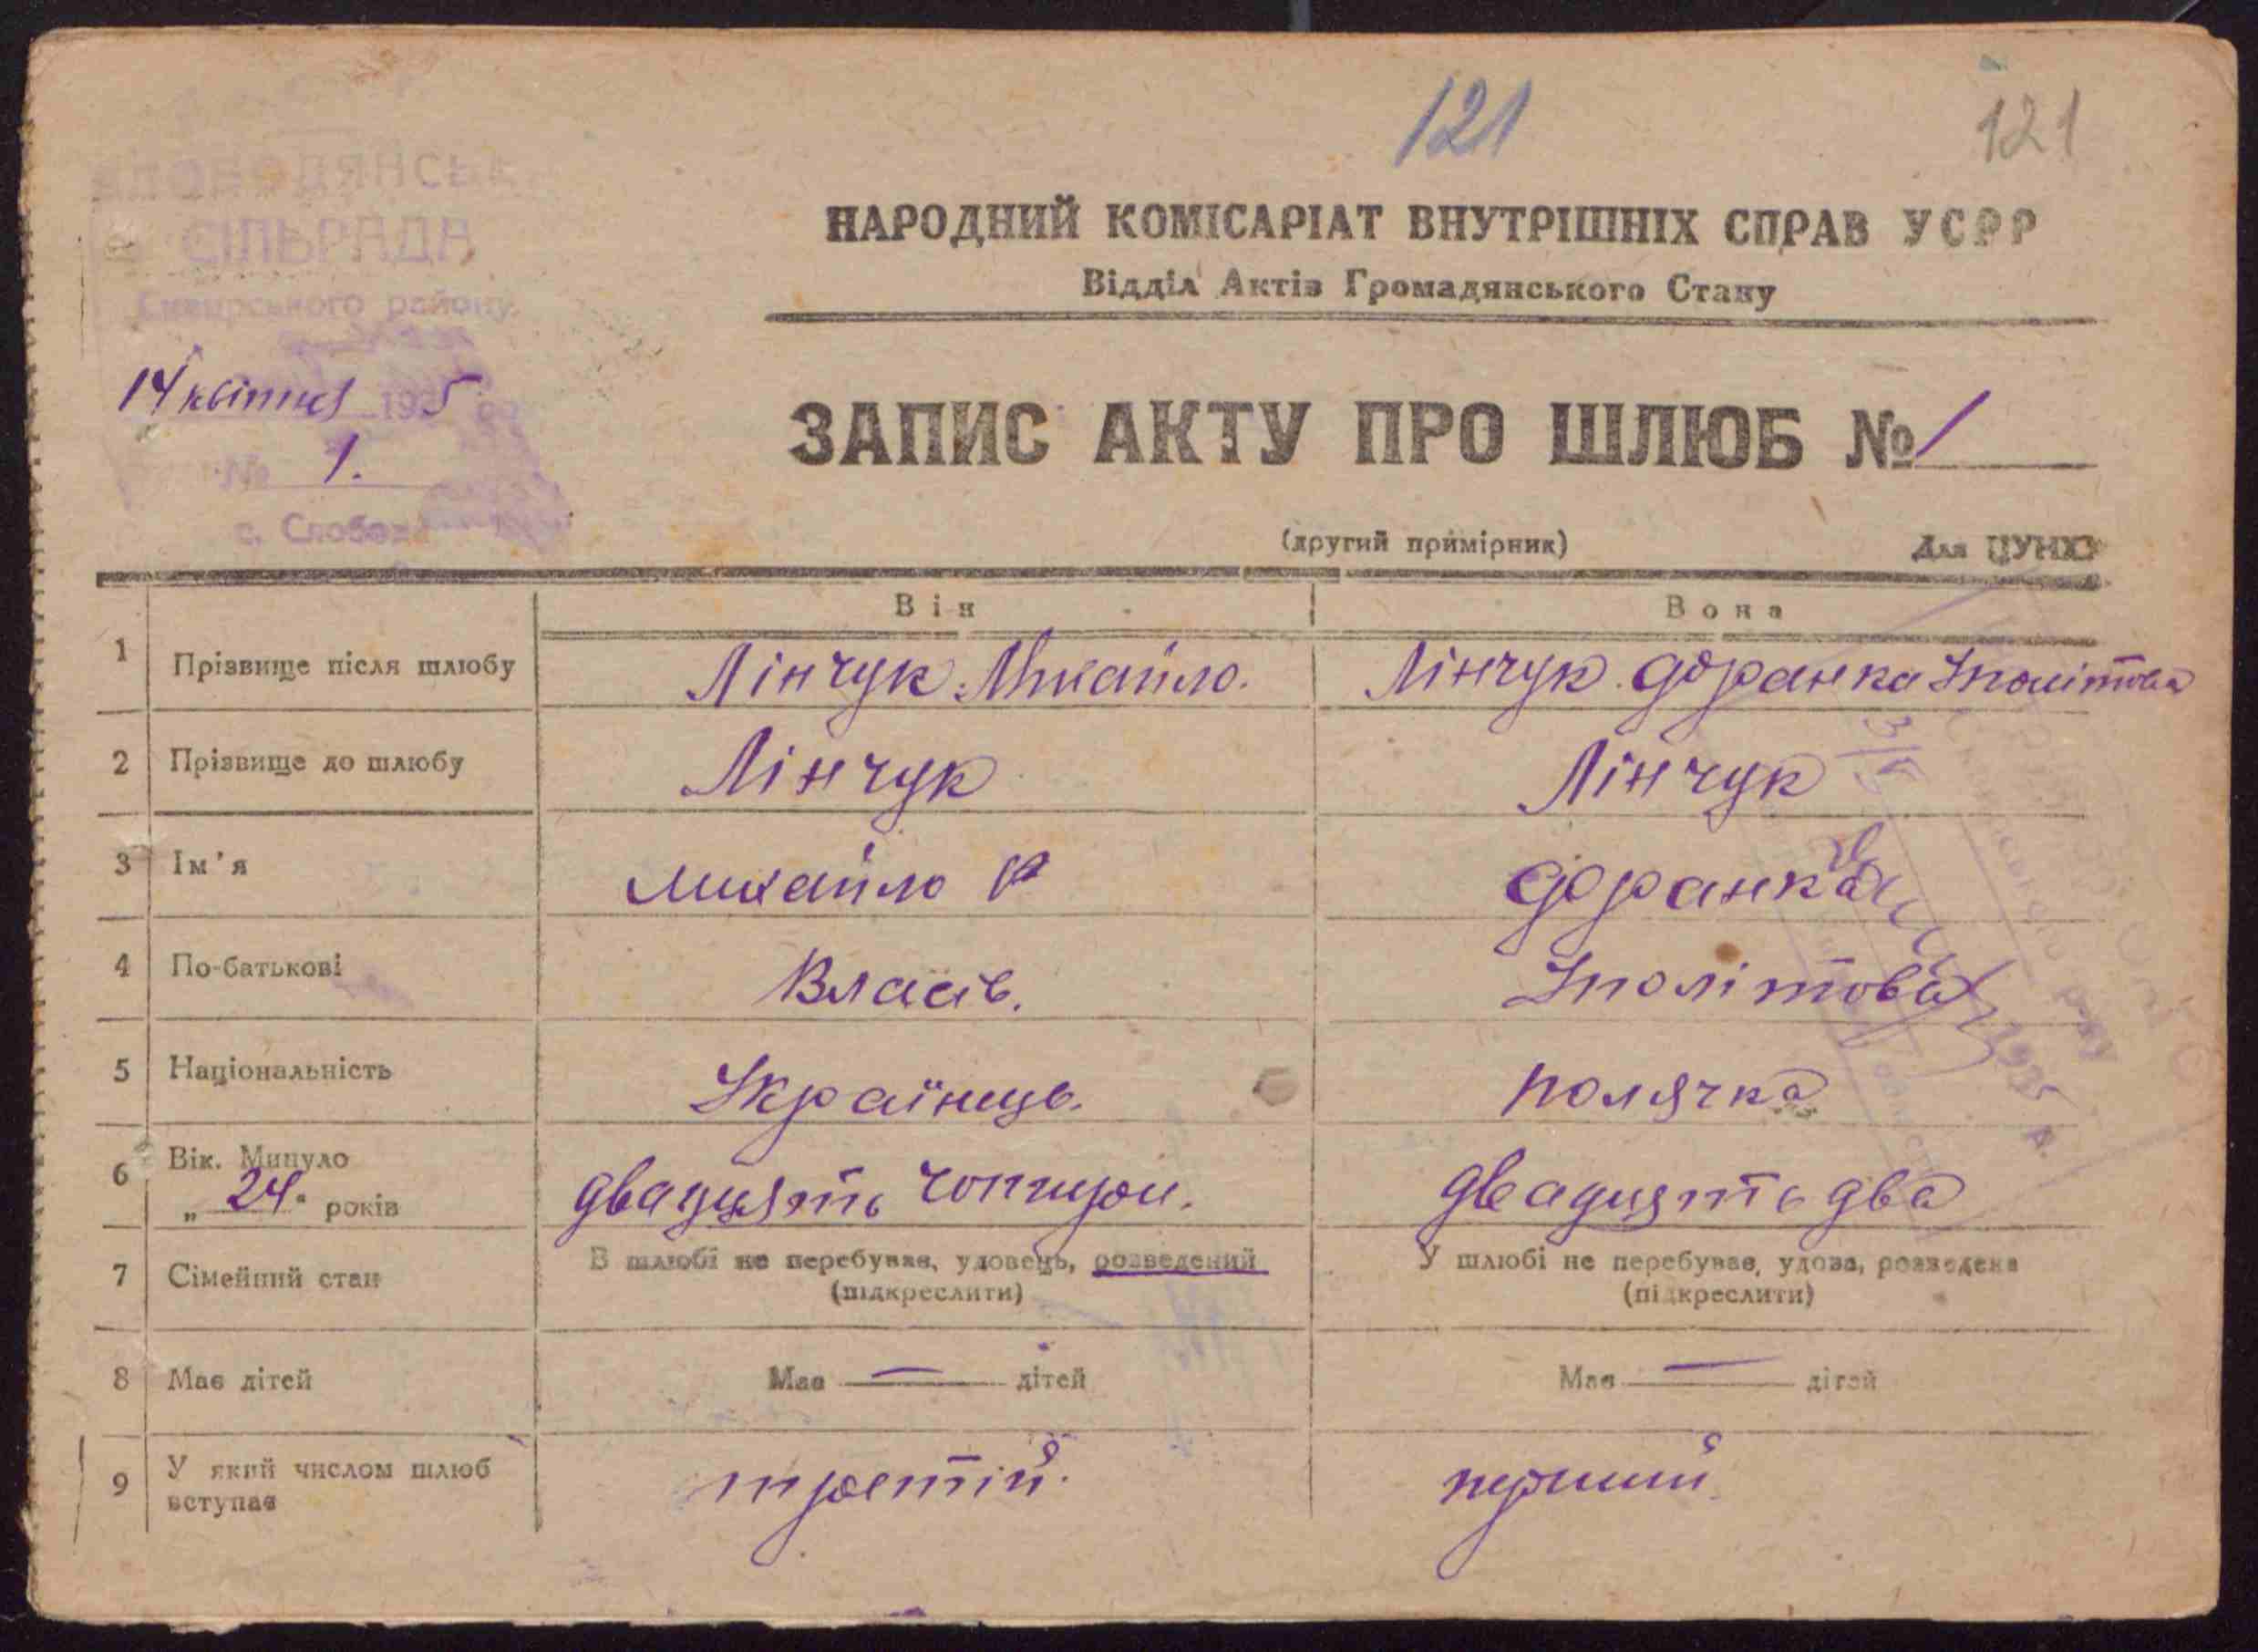 121
121
СІЛЬРАДА
району
14 квітня 1935
№ 1.
с. Слобода
НАРОДНИЙ КОМІСАРІАТ ВНУТРІШНІХ СПРАВ УСРР
Відділ Актів Громадянського Стану
ЗАПИС АКТУ ПРО ШЛЮБ № 1
(другий примірник) Для ЦУНХО
Він Вона
1 Прізвище після шлюбу Лінчук Михайло. Лінчук Франка Іполітова
2 Прізвище до шлюбу Лінчук Лінчук
3 Ім'я Михайло Франка
4 По-батькові Власів. Іполітова
5 Національність Українець. полячка
6 Вік. Минуло двадцять чотири. двадцять два
„ 24 " років
7 Сімейний стан В шлюбі не перебував, удовець, розведений У шлюбі не перебуває, удова, розведена
(підкреслити) (підкреслити)
8 Має дітей Має — дітей Має — дітей
9 У який числом шлюб вступає третій. перший.